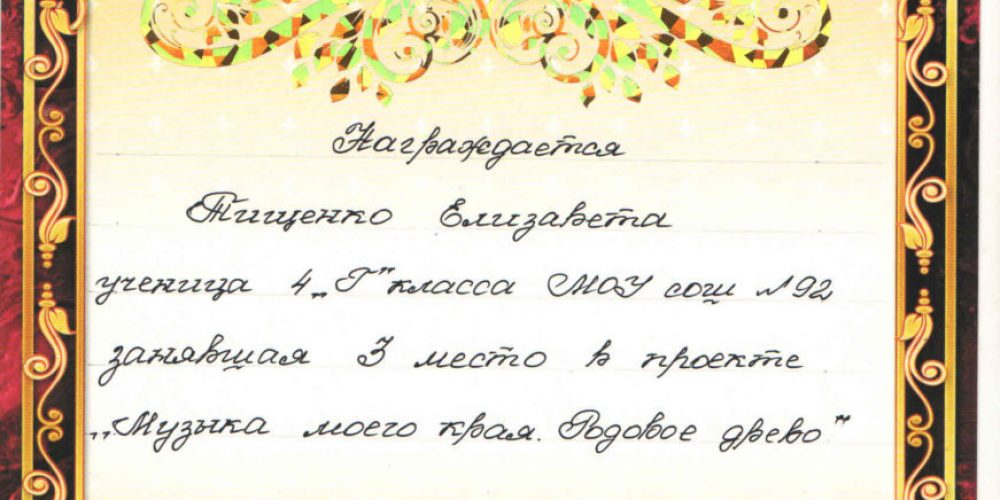 Награждается
Тищенко Елизавета
ученица 4 „Г" класса МОУ сош №92
занявшая 3 место в проекте
„Музыка моего края. Родовое древо"